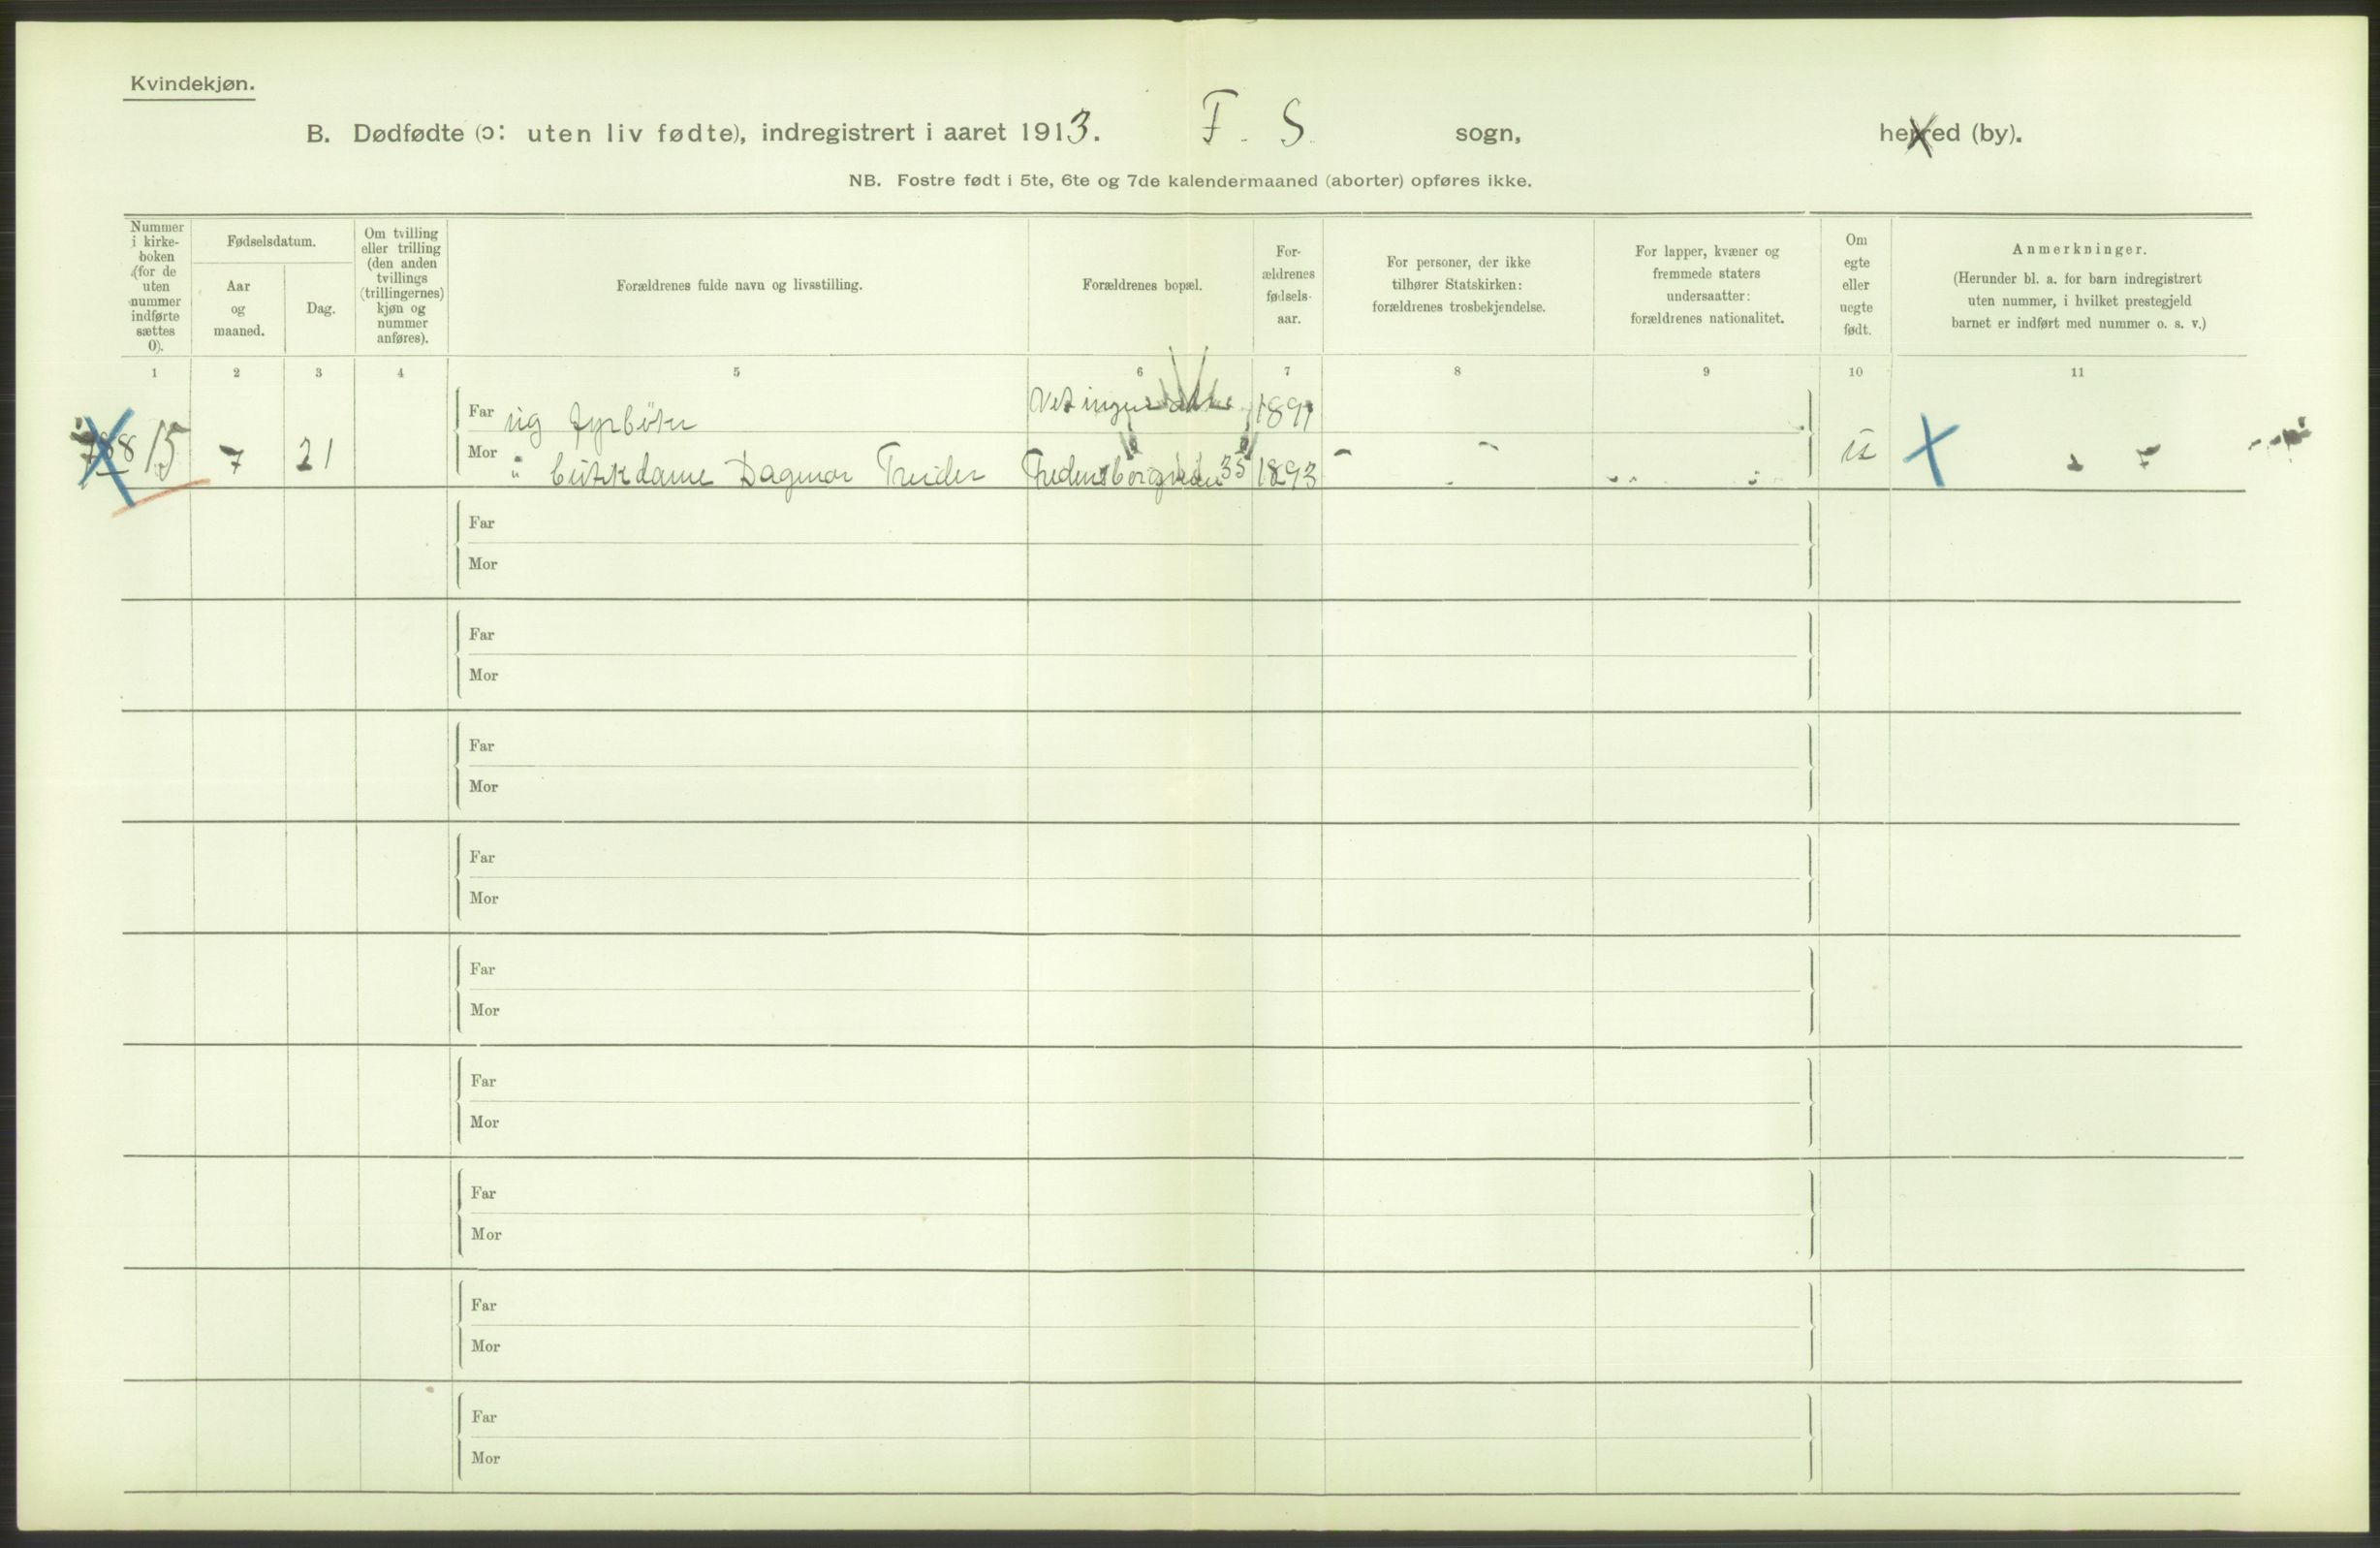 Kvindekjøn.
B. Dødfødte (ɔ: uten liv fødte), indregistrert i aaret 1913. F. S. sogn, herred (by).
NB. Fostre født i 5te, 6te og 7de kalendermaaned (aborter) opføres ikke.
Nummer
i kirke-
boken
(for de
uten
nummer
indførte
sættes
0).
Fødselsdatum.
Aar
og
maaned.
Dag.
Om tvilling
eller trilling
(den anden
tvillings
(trillingernes)
kjøn og
nummer
anføres).
Forældrenes fulde navn og livsstilling.
Forældrenes bopæl.
For-
ældrenes
fødsels-
aar.
For personer, der ikke
tilhører Statskirken:
forældrenes trosbekjendelse.
For lapper, kvæner og
fremmede staters
undersaatter:
forældrenes nationalitet.
Om
egte
eller
uegte
født.
Anmerkninger.
(Herunder bl. a. for barn indregistrert
uten nummer, i hvilket prestegjeld
barnet er indført med nummer o. s. v.)
1 2 3 4 5 6 7 8 9 10 11
Far ug fyrbøter 1891
15 7 21 Mor " Dagmar 35 1893
Far
Mor
Far
Mor
Far
Mor
Far
Mor
Far
Mor
Far
Mor
Far
Mor
Far
Mor
Far
Mor